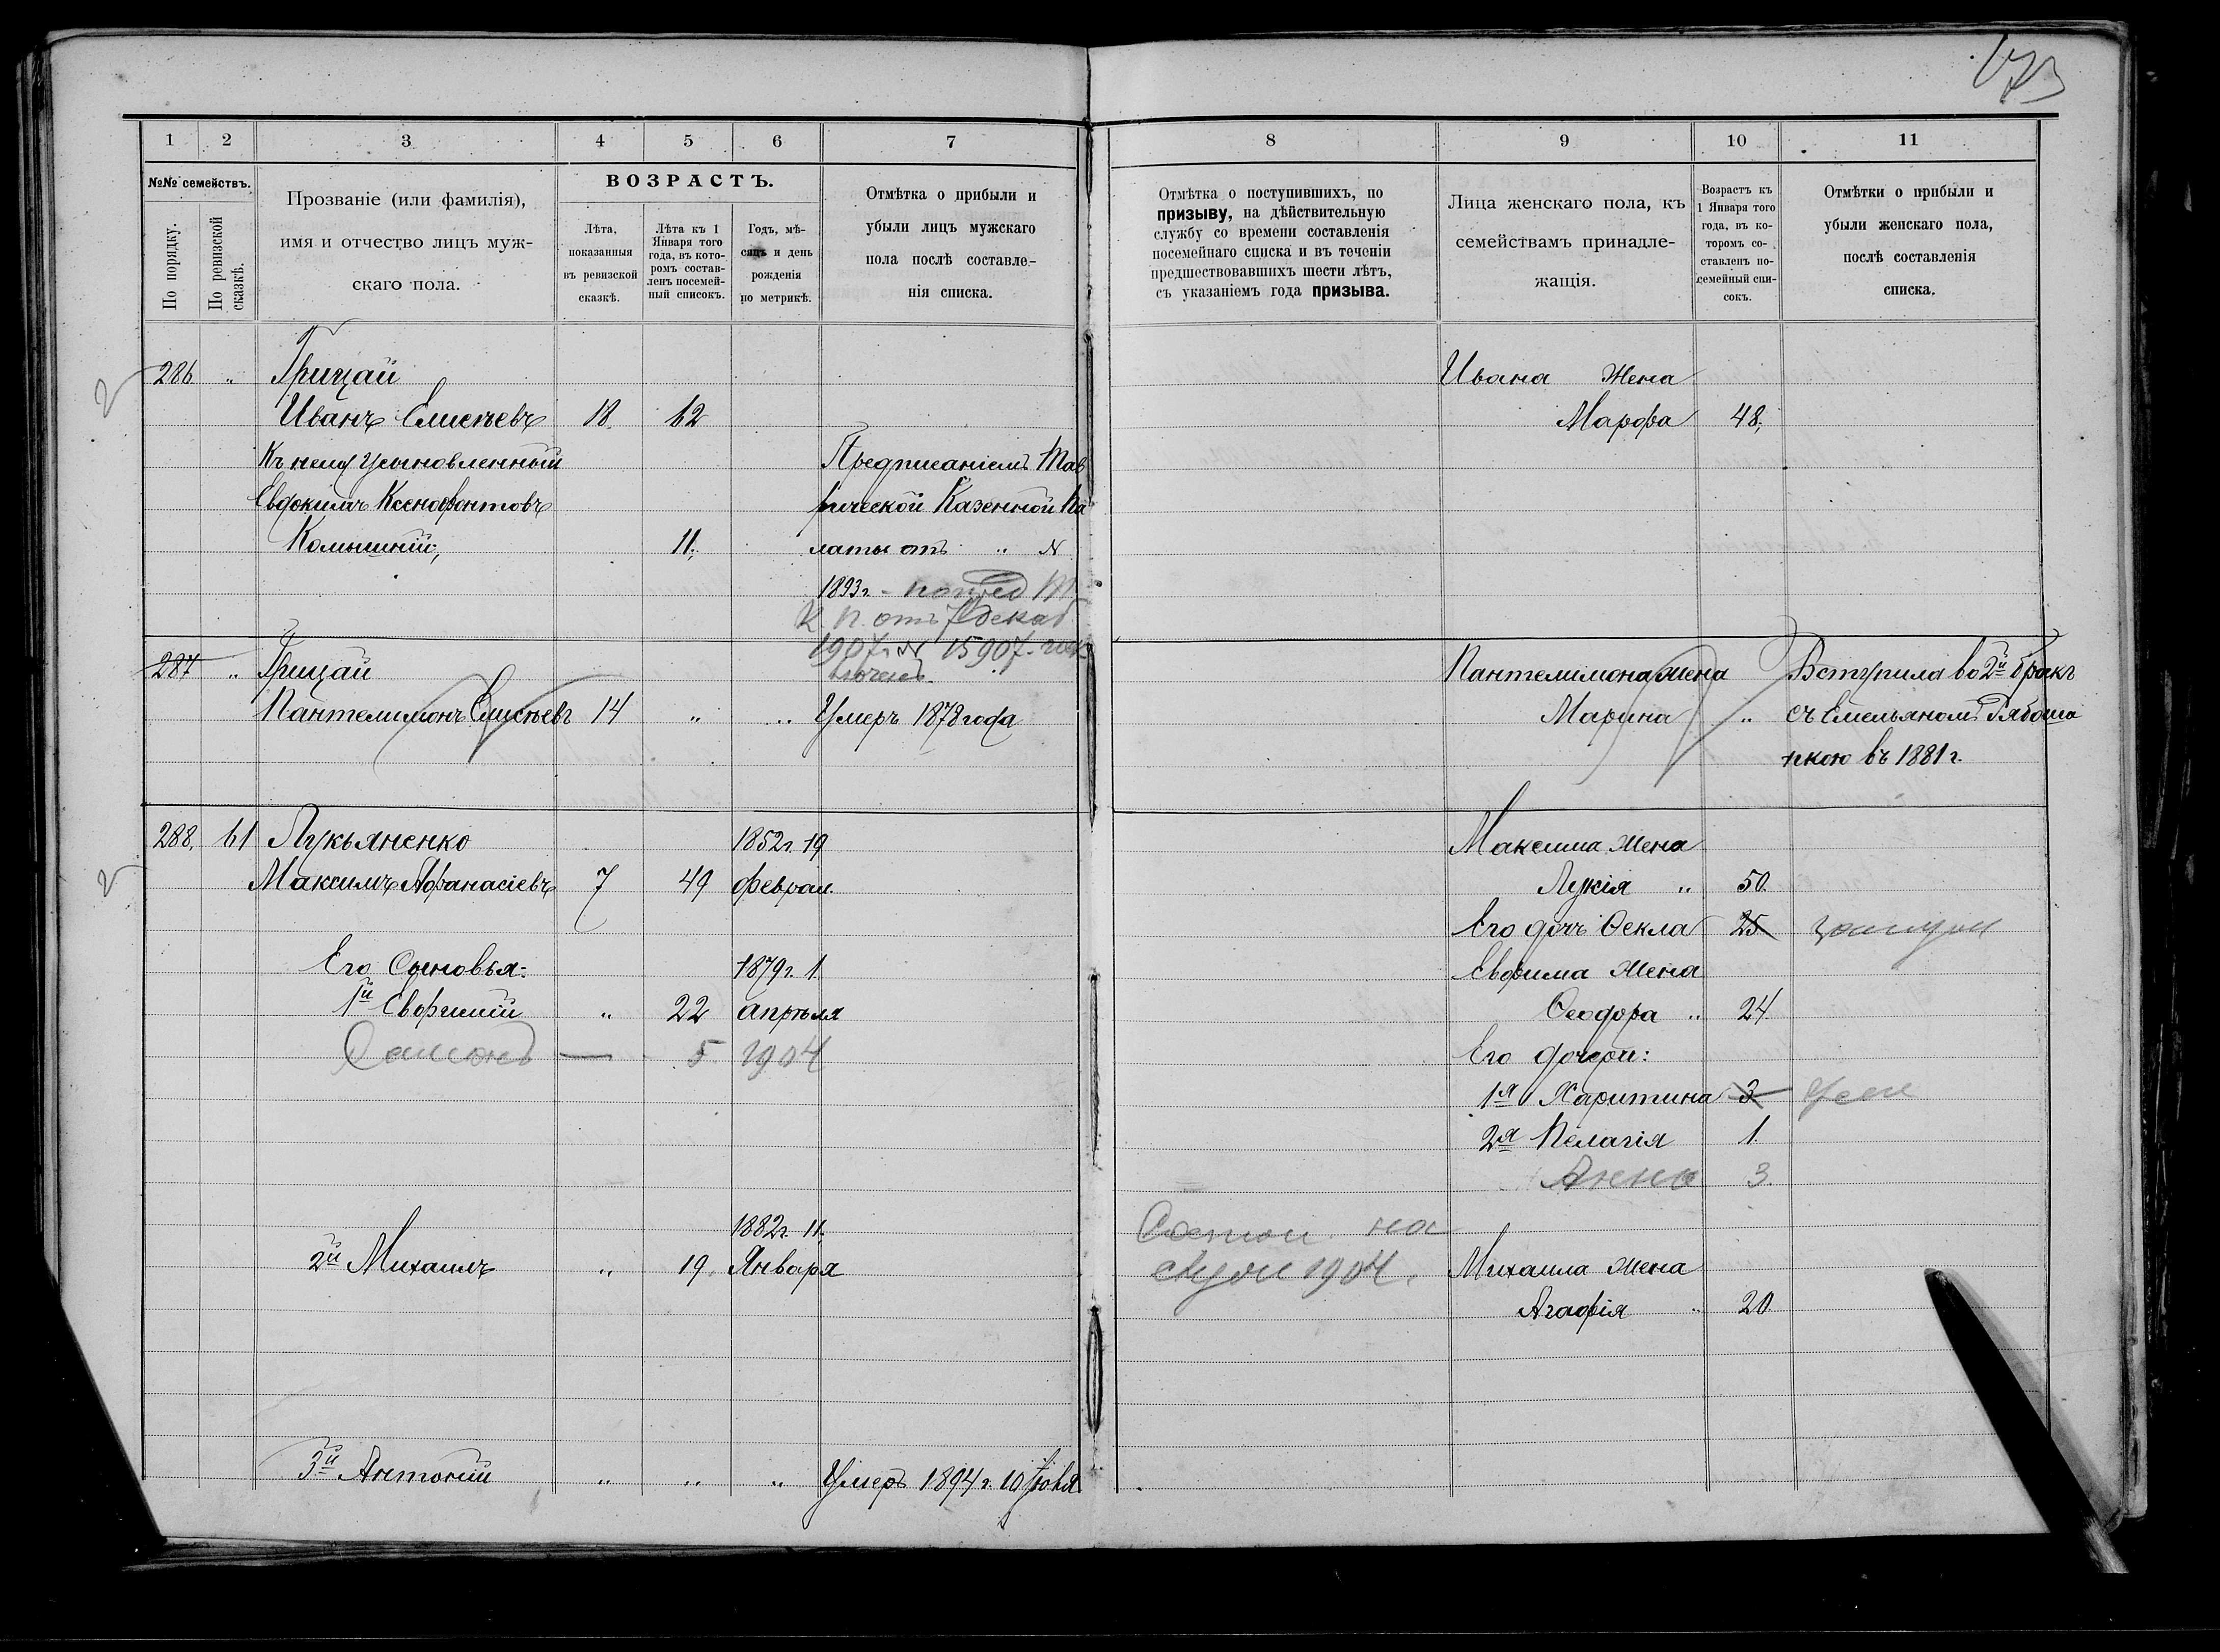 173
1 2 3 4 5 6 7
№№ семействъ.
По порядку.
По ревизской сказкѣ.
Прозваніе (или фамилія),
имя и отчество лицъ муж-
скаго пола.
ВОЗРАСТЪ.
Лѣта,
показанныя
въ ревизской
сказкѣ.
Лѣта къ 1
Января того
года, въ кото-
ромъ состав-
ленъ посемей-
ный списокъ.
Годъ, мѣ-
сяцъ и день
рожденія
по метрикѣ.
Отмѣтка о прибыли и
убыли лицъ мужскаго
пола послѣ составле-
нія списка.
286 " Грицай
Иванъ Елисѣевъ 18. 62
Къ нему Усыновленный
Евдокимъ Ксенофонтовъ
Комышній, 11,
Предписаніемъ Тав
рической Казенной Па
латы отъ " №
1893 г.
К. П. отъ 7 декаб
1907 г. № 15907.
287 " Грицай
Пантелимонъ Елисѣевъ 14 " " Умеръ 1878 года
288. 61 Лукьяненко 1852 г. 19
Максимъ Афанасіевъ 7 49 феврал.
Его Сыновья: 1879 г. 1
1й Евфимій " 22 апрѣля
5 1904
1882 г. 11.
2й Михаилъ " 19. Января
3й Антоній " " " Умеръ 1894 г. 10 Іюля
8 9 10 11
Отмѣтка о поступившихъ, по
призыву, на дѣйствительную
службу со времени составленія
посемейнаго списка и въ теченіи
предшествовавшихъ шести лѣтъ,
съ указаніемъ года призыва.
Лица женскаго пола, къ
семействамъ принадле-
жащія.
Возрастъ къ
1 Января того
года, въ ко-
торомъ со-
ставленъ по-
семейный спи-
сокъ.
Отмѣтки о прибыли и
убыли женскаго пола,
послѣ составленія
списка.
Ивана Жена
Марфа 48,
Пантелимона жена Вступила во 2й бракъ
Марина " съ Емельяномъ Рябоша
пкою въ 1881 г.
Максима жена
Лукія " 50.
Его дочь Ѳекла 25 замуж
Евфима жена
Ѳеодора " 24.
Его дочери:
1я Харитина 3 Умер
2я Пелагія 1.
Анна 3.
Состои. на
служ 1904. Михаила жена
Агафія " 20.